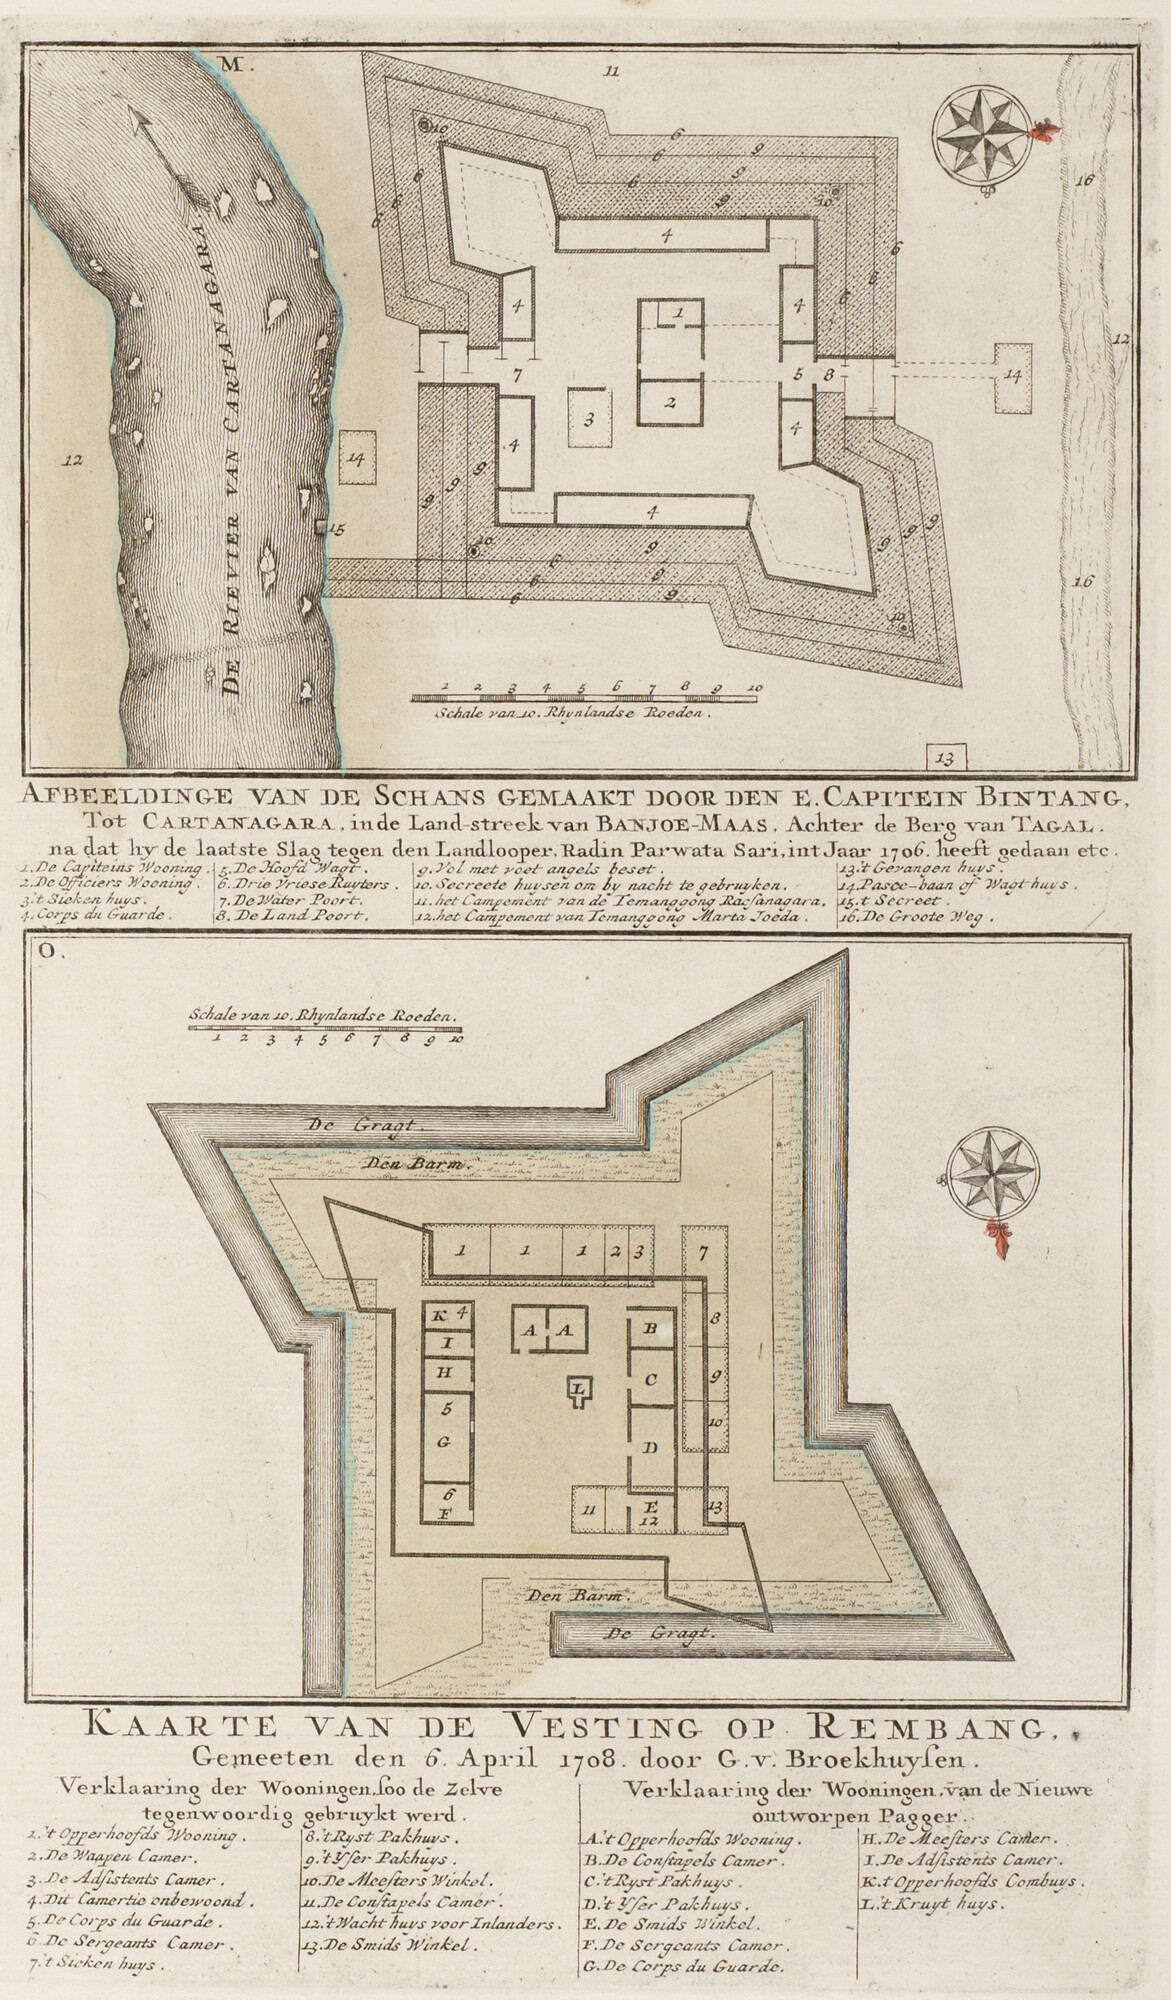 M.
11
10
6
6
9
6
9
9
10
16
6
6
6
4
6
6
6
4
4
1
12
7
5
8
14
2
3
4
4
12
14
9
9
9
4
15
10
6
9
6
9
6
9
9
9
9
10
16
DE RIEVIER VAN CARTANAGARA
1 2 3 4 5 6 7 8 9 10
Schale van 10. Rhynlandse Roeden.
13
AFBEELDINGE VAN DE SCHANS GEMAAKT DOOR DEN E. CAPITEIN BINTANG,
Tot CARTANAGARA, in de Land-streek van BANJOE-MAAS, Achter de Berg van TAGAL.
na dat hy de laatste Slag tegen den Landlooper, Radin Parwata Sari, int Jaar 1706. heeft gedaan etc.
1. De Capiteins Wooning.
2. De Officiers Wooning.
3. 't Sieken huys.
4. Corps du Guarde.
5. De Hoofd Wagt.
6. Drie Vriese Ruyters.
7. De Water Poort.
8. De Land Poort.
9. Vol met voet angels beset.
10. Secreete huysen om by nacht te gebruyken.
11. het Campement van de Temanggong Racsanagara.
12. het Campement van Temanggong Marta Joeda.
13. 't Gevangen huys.
14. Pasee-baan of Wagt-huys.
15. t Secreet.
16. De Groote Weg.
O.
Schale van 10. Rhynlandse Roeden.
1 2 3 4 5 6 7 8 9 10
De Gragt.
Den Barm.
1 1 1 2 3
7
K 4
A A
B
8
I
H
L
C
9
5
G
10
D
6
F
11
E
12
13
Den Barm.
De Gragt.
KAARTE VAN DE VESTING OP REMBANG,
Gemeeten den 6. April 1708. door G. v. Broekhuysen.
Verklaaring der Wooningen, soo de Zelve
tegenwoordig gebruykt werd.
1. 't Opperhoofds Wooning.
2. De Waapen Camer.
3. De Adsistents Camer.
4. Dit Camertie onbewoond.
5. De Corps du Guarde.
6. De Sergeants Camer.
7. 't Sieken huys.
8. 't Ryst Pakhuys.
9. 't Yser Pakhuys.
10. De Meesters Winkel.
11. De Constapels Camer.
12. 't Wacht huys voor Inlanders.
13. De Smids Winkel.
Verklaaring der Wooningen, van de Nieuwe
ontworpen Pagger.
A. 't Opperhoofds Wooning.
B. De Constapels Camer.
C. 't Ryst Pakhuys.
D. 't Yser Pakhuys.
E. De Smids Winkel.
F. De Sergeants Camer.
G. De Corps du Guarde.
H. De Meesters Camer.
I. De Adsistents Camer.
K. t Opperhoofds Combuys.
L. 't Kruyt huys.